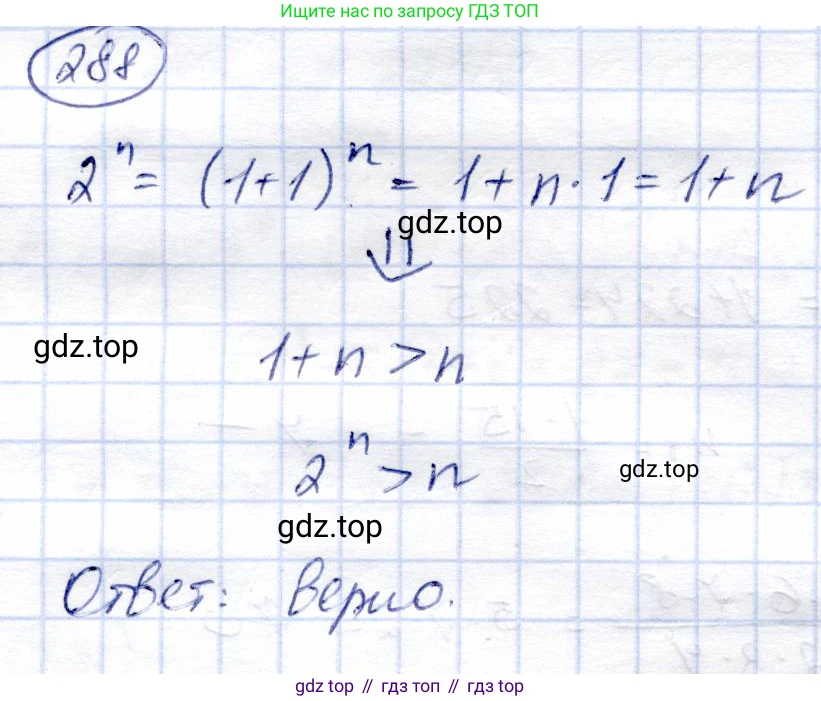 Ищите нас по запросу ГДЗ ТОП
288
2ⁿ = (1+1)ⁿ = 1 + n · 1 = 1 + n
gdz.top
⇓
gdz.top
1 + n > n
2ⁿ > n
gdz.top
gdz.top
Ответ: Верно.
gdz top // гдз топ // гдз top